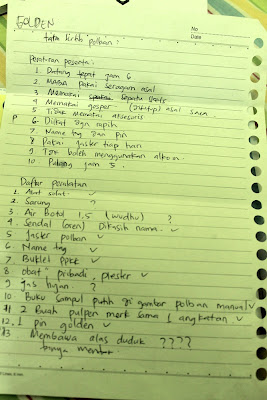 GOLDEN
No
Date
tata tertib polban :
Peraturan peserta :
1. Datang tepat jam 6
2. Masih pakai seragam asal
3. Memakai sepatu
4. Memakai gesper (ditutup) asal
5. Tidak memakai aksesoris
P 6. Diikat dgn rapih
7. Name tag dan pin
8. Pakai jasker tiap hari
9. Tdk boleh menggunakan
10. Pulang jam 5.
Daftar peralatan
1. Alat solat. ✓
2. Sarung ?
3. Air Botol 1,5 (wudhu) ?
4. Sendal (oren) Dikasih nama. ✓
5. jasker polban ✓
6. Name tag ✓
7. Buklet PPKK ✓
8. obat" pribadi, plester ✓
9. Jas hujan. ?
10. Buku Sampul putih di gambar polban manual ✓
11. 2 Buah pulpen merk sama 1 angkatan ✓
12. 1 pin golden ✓
13. Membawa alas duduk ????